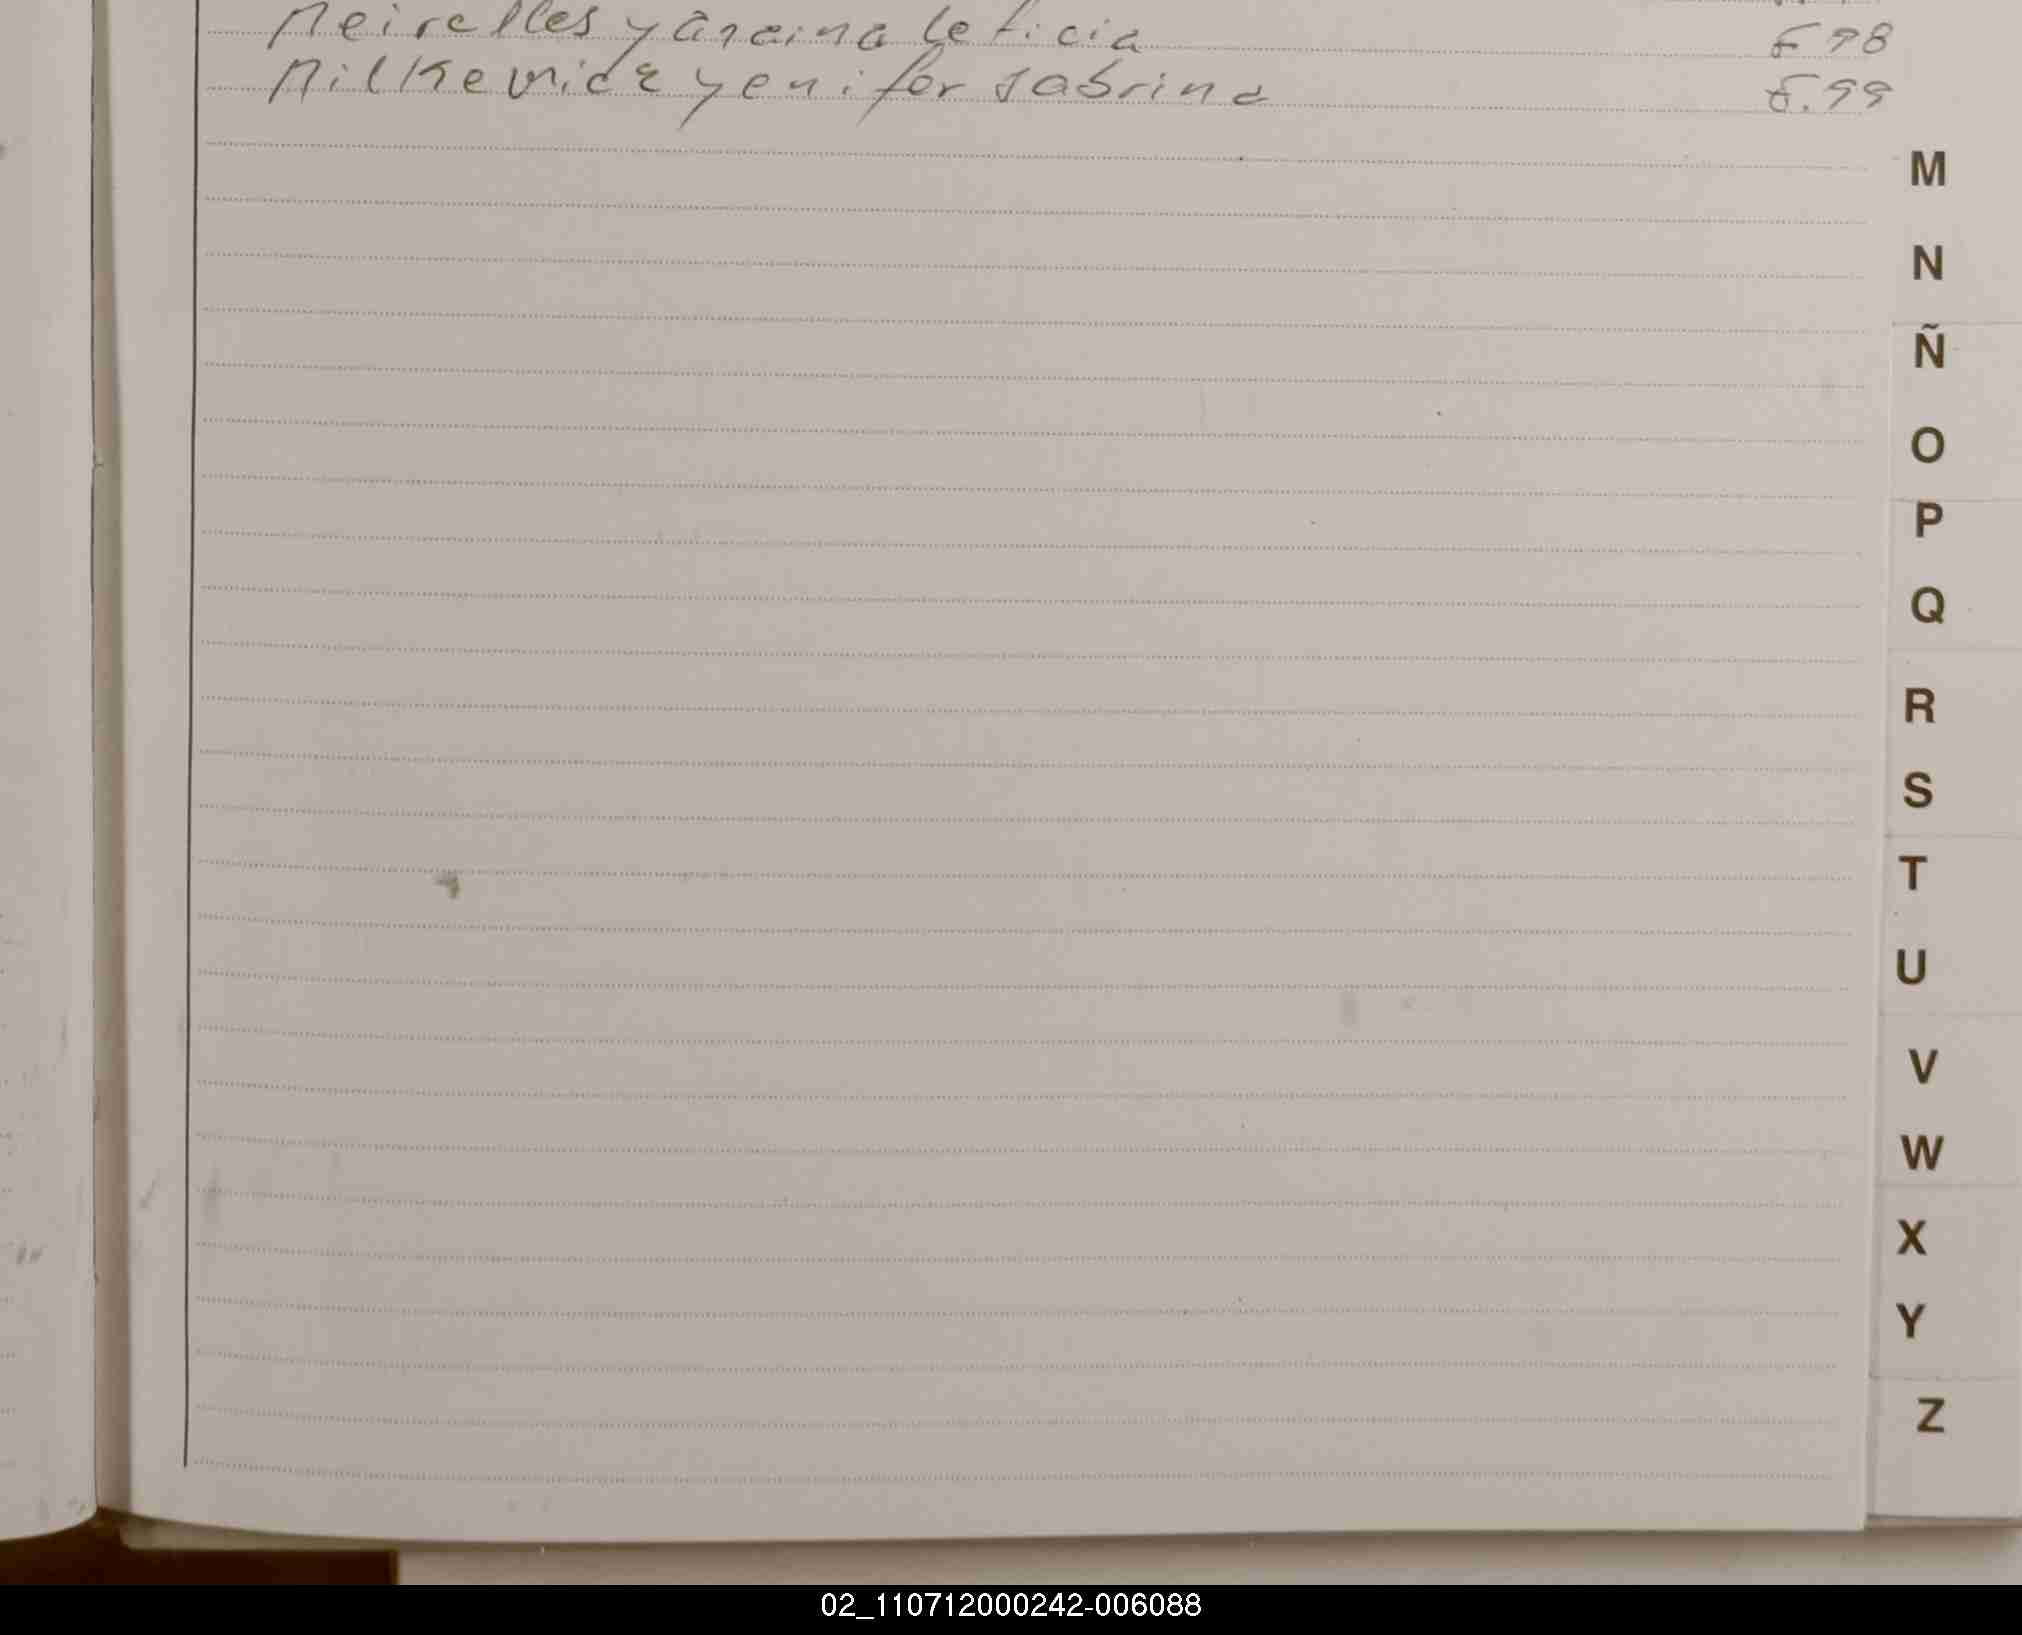 Meirelles yanaina leticia F 98
Milkevicz yenifer sabrina F. 99
M
N
Ñ
O
P
Q
R
S
T
U
V
W
X
Y
Z
02_110712000242-006088